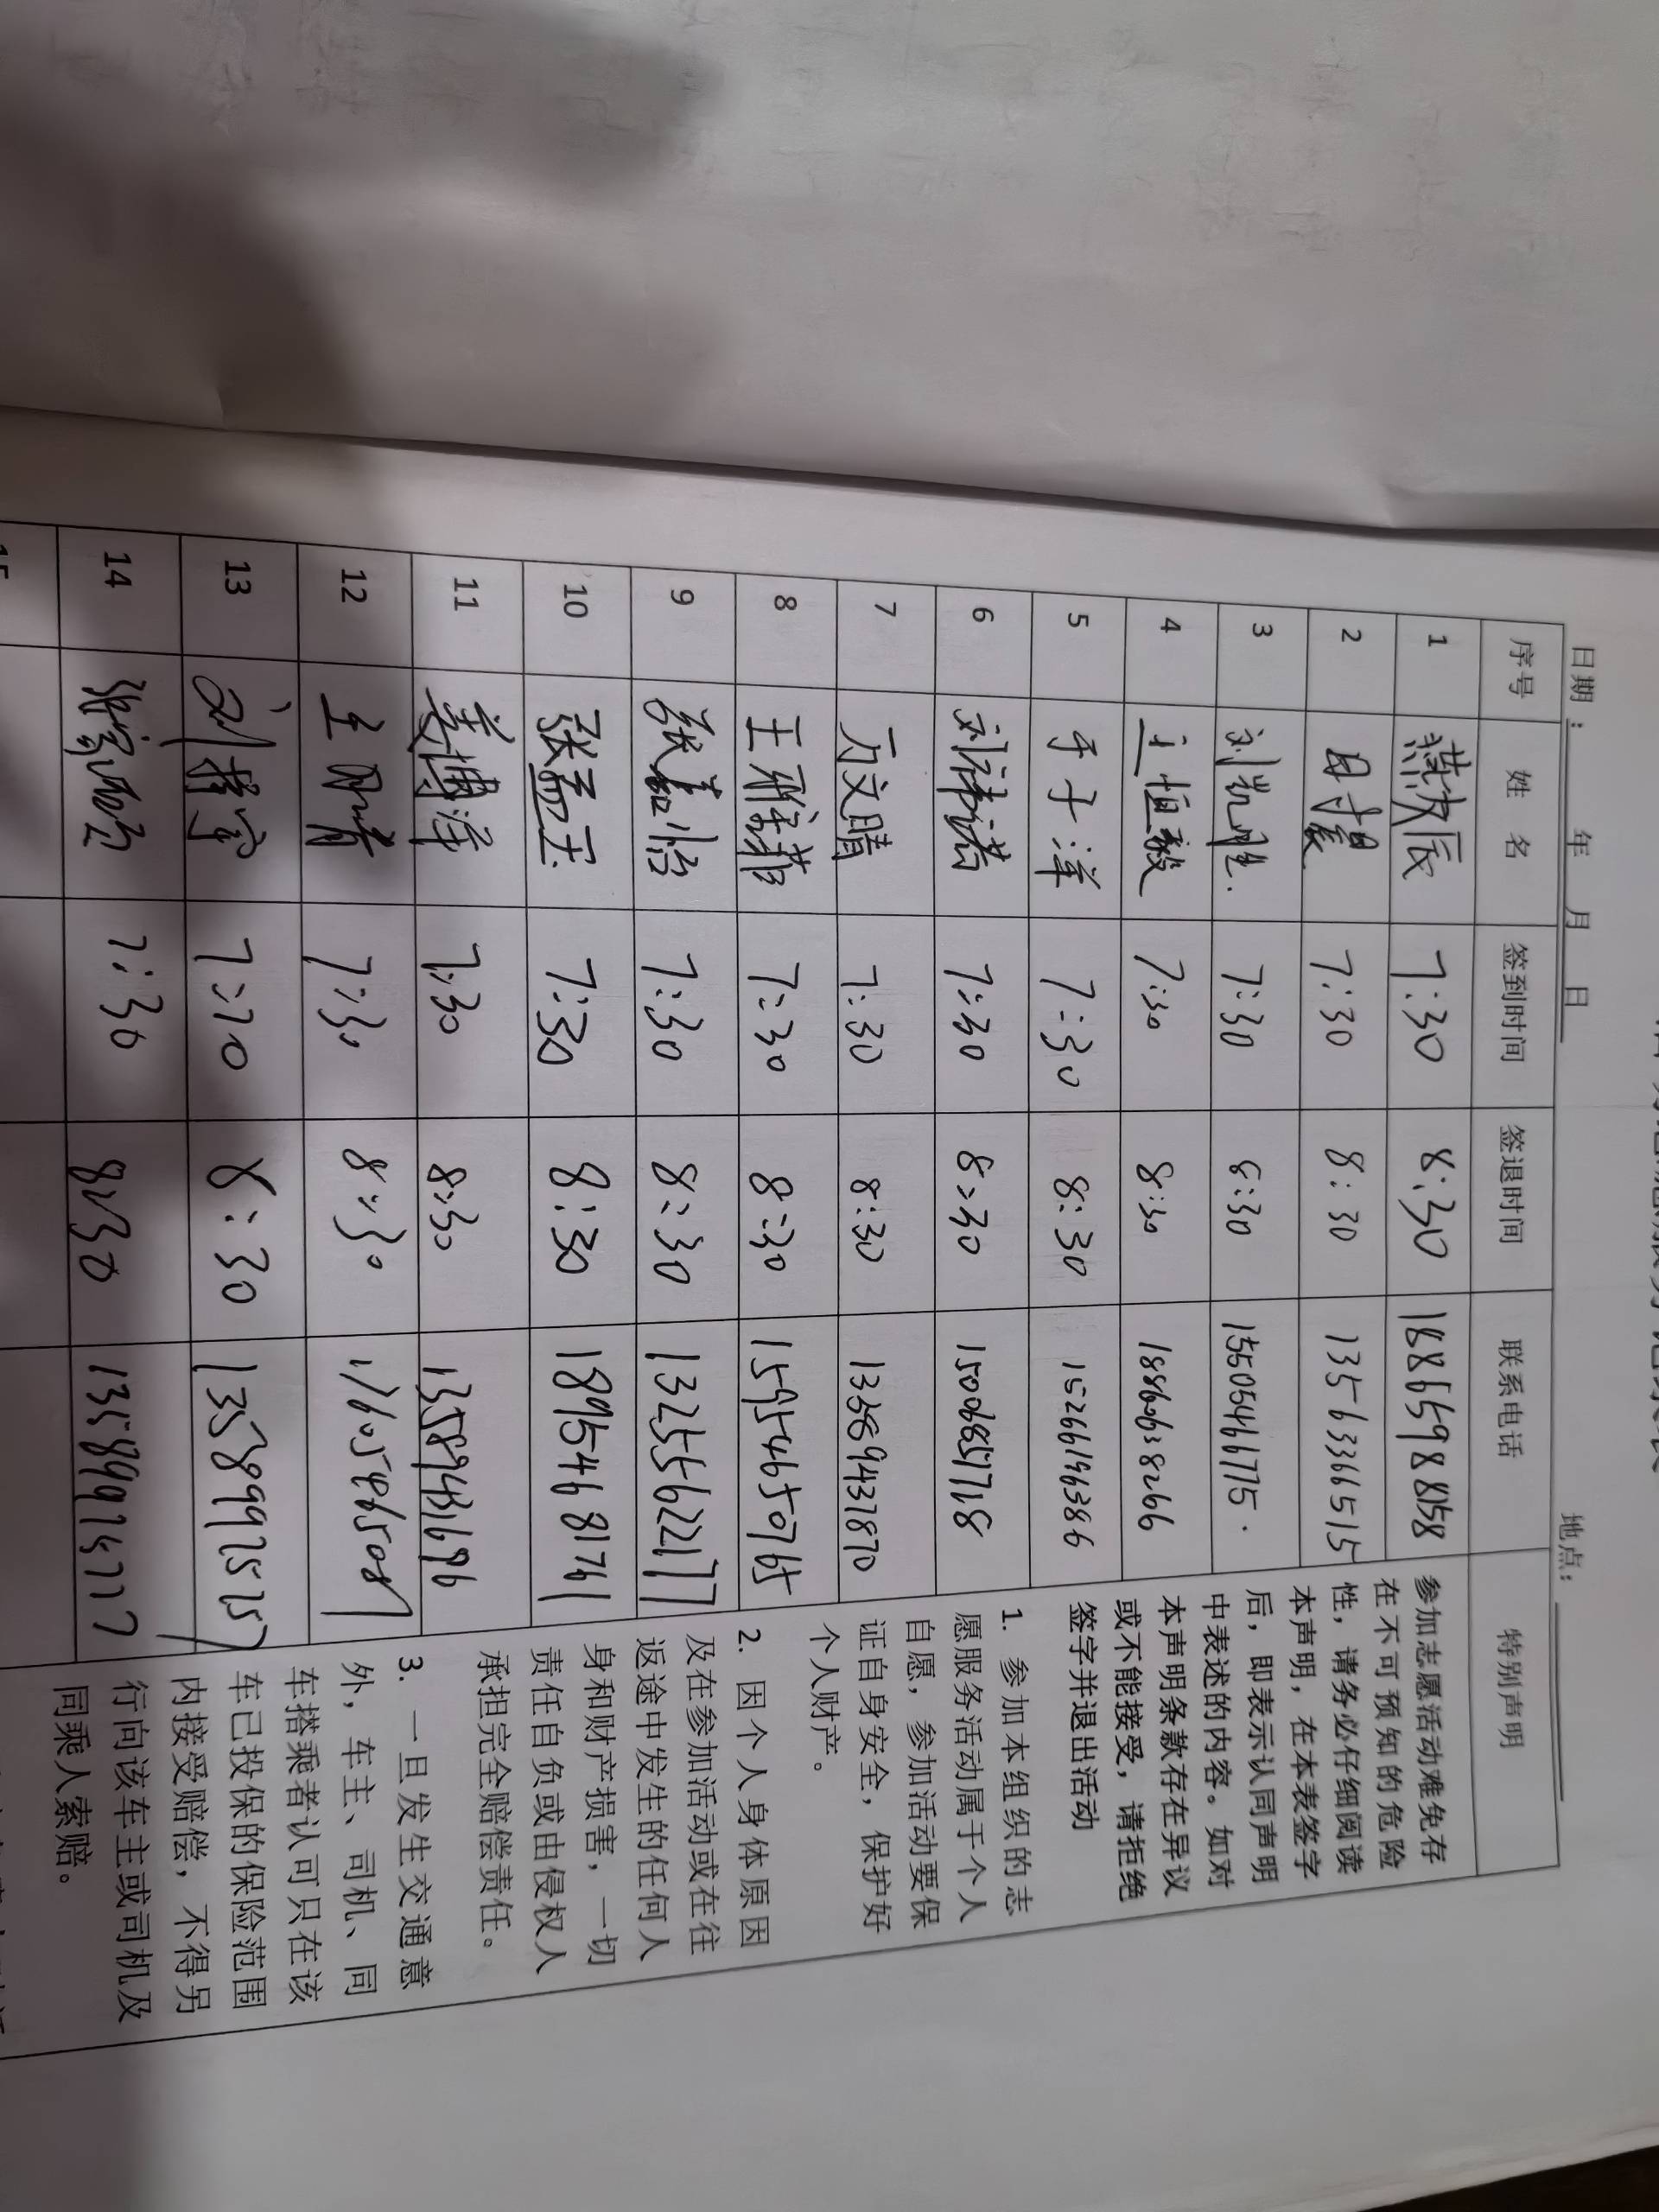 日期： 年 月 日 地点：
序号 姓 名 签到时间 签退时间 联系电话 特别声明
1 燕友辰 7:30 8:30 18865988158
2 7:30 8:30 13563366515
3 刘凯旭 7:30 8:30 15505466775
4 王恒毅 7:30 8:30 18860638266
5 于子洋 7:30 8:30 15266196386
6 刘祎诺 7:30 8:30 15006857718
7 万文晴 7:30 8:30 13589437870
8 王雅菲 7:30 8:30 15954650765
9 张嘉怡 7:30 8:30 13255622177
10 张孟玉 7:30 8:30 18954681741
11 姜博洋 7:30 8:30 13589431696
12 王 7:30 8:30
13 刘 7:30 8:30 13589975757
14 7:30 8:30
参加志愿活动难免存
在不可预知的危险
性，请务必仔细阅读
本声明，在本表签字
后，即表示认同声明
中表述的内容。如对
本声明条款存在异议
或不能接受，请拒绝
签字并退出活动
1. 参加本组织的志
愿服务活动属于个人
自愿，参加活动要保
证自身安全，保护好
个人财产。
2. 因个人身体原因
及在参加活动或在往
返途中发生的任何人
身和财产损害，一切
责任自负或由侵权人
承担完全赔偿责任。
3. 一旦发生交通意
外，车主、司机、同
车搭乘者认可只在该
车已投保的保险范围
内接受赔偿，不得另
行向该车主或司机及
同乘人索赔。